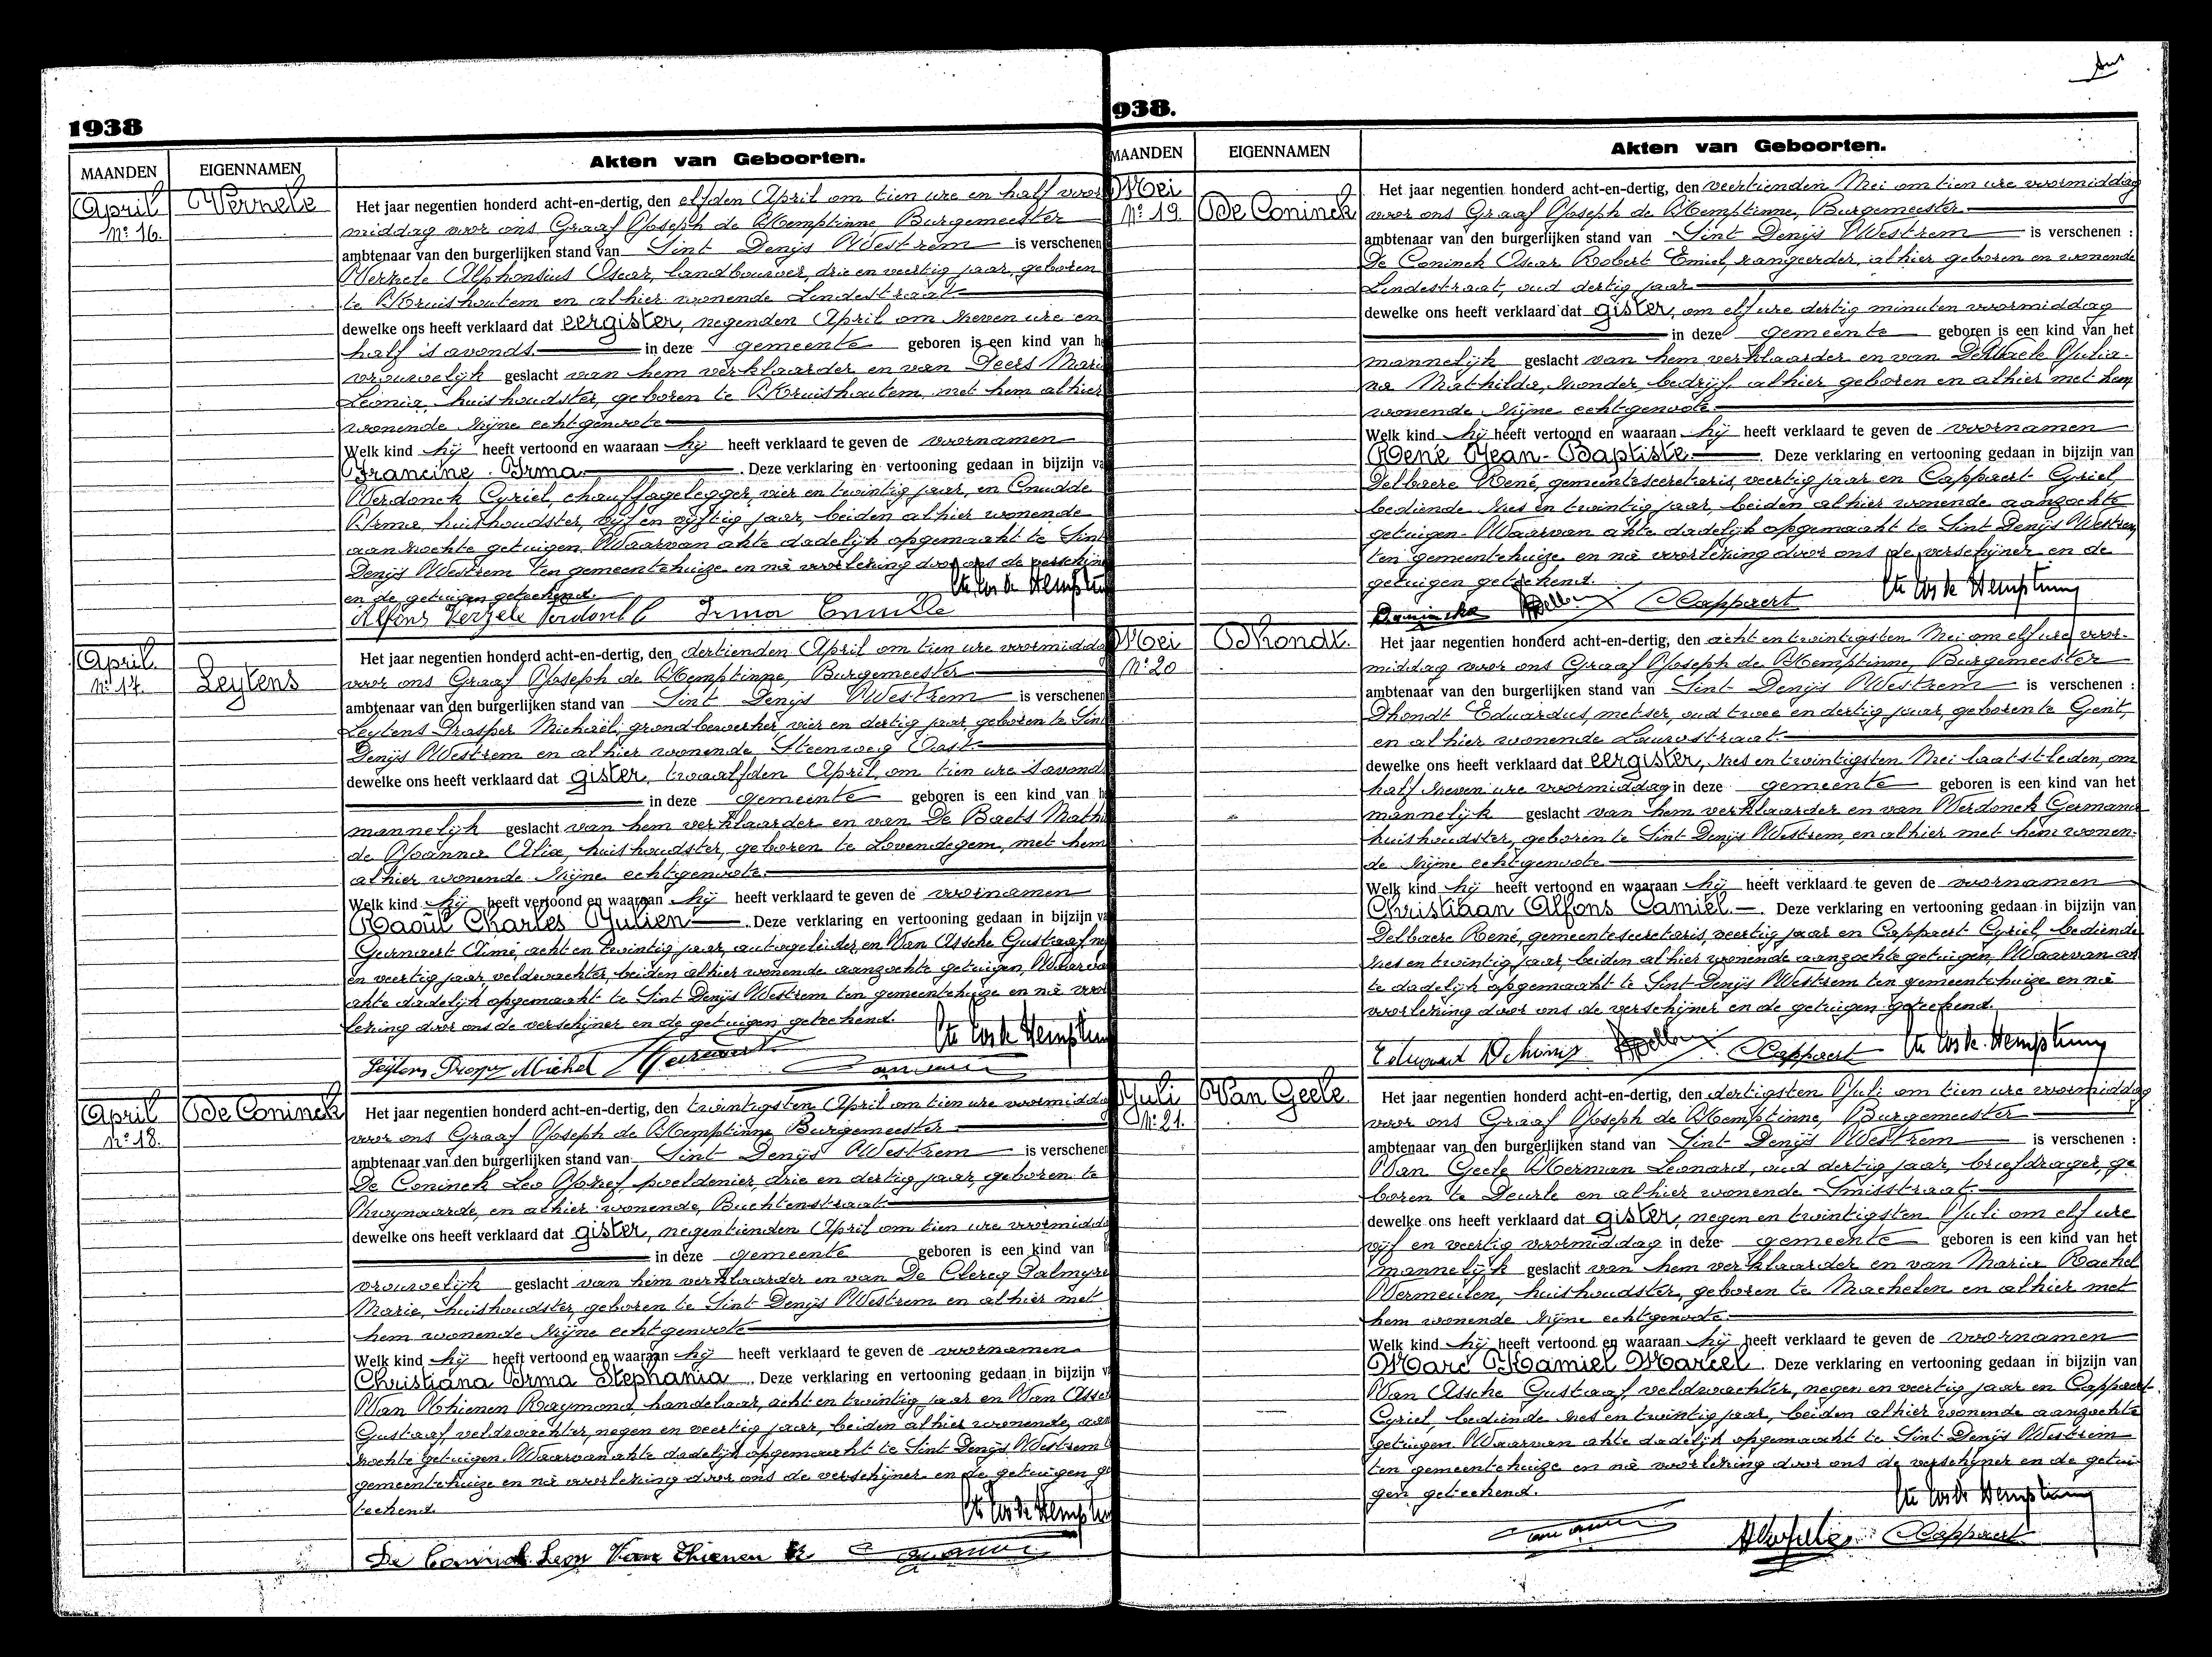 1938
MAANDEN
EIGENNAMEN
Akten van Geboorten.
April
Nº 16.
Verzele
Het jaar negentien honderd acht-en-dertig, den elfden April om tien ure en half voor
middag voor ons Graaf Joseph de Hemptinne, Burgemeester
ambtenaar van den burgerlijken stand van Sint Denijs Westrem is verschenen
Verzele Alphonsius Oscar, landbouwer, drie en veertig jaar, geboren
te Kruishoutem en alhier wonende Lindestraat
dewelke ons heeft verklaard dat eergister, negenden April om zeven ure en
half 's avonds in deze gemeente geboren is een kind van h
vrouwelijk geslacht van hem verklaarder en van Deers Mari
Leonia, huishoudster, geboren te Kruishoutem, met hem alhier
wonende zijne echtgenoote
Welk kind hij heeft vertoond en waaraan hij heeft verklaard te geven de voornamen
Francine Irma. Deze verklaring en vertooning gedaan in bijzijn va
Verdonck Cyriel, chauffagelegger, vier en twintig jaar, en Cnudde
Irma, huishoudster, vijf en vijftig jaar, beiden alhier wonende
aanzochte getuigen. Waarvan akte dadelijk opgemaakt te Sint
Denijs Westrem ten gemeentehuize en nà voorlezing door ons de verschijne
en de getuigen geteekend.
Alfons Verzele Verdonck C Irma Cnudde
April
Nº 17.
Leytens
Het jaar negentien honderd acht-en-dertig, den dertienden April om tien ure voormidda
voor ons Graaf Joseph de Hemptinne, Burgemeester
ambtenaar van den burgerlijken stand van Sint Denijs Westrem is verschenen
Leytens Prosper Michaël, grondbewerker, vier en dertig jaar, geboren te Sint
Denijs Westrem en alhier wonende Steenweg Oost
dewelke ons heeft verklaard dat gister, twaalfden April, om tien ure 's avond
in deze gemeente geboren is een kind van h
mannelijk geslacht van hem verklaarder en van De Baets Mathi
de Joanna Alix, huishoudster, geboren te Lovendegem, met hem
alhier wonende zijne echtgenoote.
Welk kind hij heeft vertoond en waaraan hij heeft verklaard te geven de voornamen
Raoül Charles Julien. Deze verklaring en vertooning gedaan in bijzijn va
Aimé, acht en twintig jaar, autogeleider, en Van Assche Gustaaf, ne
en veertig jaar, veldwachter, beiden alhier wonende aanzochte getuigen. Waarva
akte dadelijk opgemaakt te Sint Denijs Westrem ten gemeentehuize en nà voor
lezing door ons de verschijner en de getuigen geteekend.
Leytens Prosper Michel
April
Nº 18.
De Coninck
Het jaar negentien honderd acht-en-dertig, den twintigsten April om tien ure voormidda
voor ons Graaf Joseph de Hemptinne, Burgemeester
ambtenaar van den burgerlijken stand van Sint Denijs Westrem is verschenen
De Coninck Leo Jozef, poeldenier, drie en dertig jaar, geboren te
Zwijnaarde, en alhier wonende, Buchtenstraat
dewelke ons heeft verklaard dat gister, negentienden April om tien ure voormidda
in deze gemeente geboren is een kind van h
vrouwelijk geslacht van hem verklaarder en van De Clercq Palmyre
Marie, huishoudster, geboren te Sint Denijs Westrem en alhier met
hem wonende zijne echtgenoote
Welk kind hij heeft vertoond en waaraan hij heeft verklaard te geven de voornamen
Christiana Irma Stephania. Deze verklaring en vertooning gedaan in bijzijn v
Van Thienen Raymond, handelaar, acht en twintig jaar en Van Assc
Gustaaf, veldwachter, negen en veertig jaar, beiden alhier wonende, aan
zochte getuigen. Waarvan akte dadelijk opgemaakt te Sint Denijs Westrem t
gemeentehuize en nà voorlezing door ons de verschijner en de getuigen g
teekend.
De Coninck Leon Van Thienen R
938.
MAANDEN
EIGENNAMEN
Akten van Geboorten.
Mei
Nº 19.
De Coninck
Het jaar negentien honderd acht-en-dertig, den veertienden Mei om tien ure voormiddag
voor ons Graaf Joseph de Hemptinne, Burgemeester.
ambtenaar van den burgerlijken stand van Sint Denijs Westrem is verschenen :
De Coninck Oscar Robert Emiel, rangeerder, alhier geboren en wonende
Lindestraat, oud dertig jaar
dewelke ons heeft verklaard dat gister, om elf ure dertig minuten voormiddag
in deze gemeente geboren is een kind van het
mannelijk geslacht van hem verklaarder en van DeWaele Julia-
na Mathilda, zonder bedrijf, alhier geboren en alhier met hem
wonende zijne echtgenoote.
Welk kind hij heeft vertoond en waaraan hij heeft verklaard te geven de voornamen
René Jean-Baptiste. Deze verklaring en vertooning gedaan in bijzijn van
Delbaere René, gemeentesecretaris, veertig jaar en Cappaert Cyriel,
bediende zes en twintig jaar, beiden alhier wonende aanzochte
getuigen. Waarvan akte dadelijk opgemaakt te Sint Denijs Westrem
ten gemeentehuize en nà voorlezing door ons de verschijner en de
getuigen geteekend.
CCappaert
Mei
Nº 20
Dhondt.
Het jaar negentien honderd acht-en-dertig, den acht en twintigsten Mei om elf ure voor-
middag voor ons Graaf Joseph de Hemptinne, Burgemeester
ambtenaar van den burgerlijken stand van Sint Denijs Westrem is verschenen :
Dhondt Eduardus, metser, oud twee en dertig jaar, geboren te Gent,
en alhier wonende Laurestraat
dewelke ons heeft verklaard dat eergister, zes en twintigsten Mei laatstleden, om
half zeven ure voormiddag in deze gemeente geboren is een kind van het
mannelijk geslacht van hem verklaarder en van Verdonck Germana
huishoudster, geboren te Sint Denijs Westrem, en alhier met hem wonen-
de zijne echtgenoote
Welk kind hij heeft vertoond en waaraan hij heeft verklaard te geven de voornamen
Christiaan Alfons Camiel. Deze verklaring en vertooning gedaan in bijzijn van
Delbaere René, gemeentesecretaris, veertig jaar en Cappaert Cyriel, bediende
zes en twintig jaar, beiden alhier wonende aanzochte getuigen. Waarvan ak
te dadelijk opgemaakt te Sint Denijs Westrem ten gemeentehuize en nà
voorlezing door ons de verschijner en de getuigen geteekend.
Eduard CCappaert
Juli
Nº 21.
Van Geele.
Het jaar negentien honderd acht-en-dertig, den dertigsten Juli om tien ure voormiddag
voor ons Graaf Joseph de Hemptinne, Burgemeester
ambtenaar van den burgerlijken stand van Sint Denijs Westrem is verschenen :
Van Geele Herman Leonard, oud dertig jaar, briefdrager, ge
boren te Deurle en alhier wonende Smisstraat.
dewelke ons heeft verklaard dat gister, negen en twintigsten Juli om elf ure
vijf en veertig voormiddag in deze gemeente geboren is een kind van het
mannelijk geslacht van hem verklaarder en van Maria Rachel
Vermeulen, huishoudster, geboren te Machelen en alhier met
hem wonende zijne echtgenoote.
Welk kind hij heeft vertoond en waaraan hij heeft verklaard te geven de voornamen
Marc Kamiel Marcel. Deze verklaring en vertooning gedaan in bijzijn van
Van Assche Gustaaf veldwachter, negen en veertig jaar en Cappaert
Cyriel, bediende zes en twintig jaar, beiden alhier wonende aanzochte
getuigen. Waarvan akte dadelijk opgemaakt te Sint Denijs Westrem
ten gemeentehuize en nà voorlezing door ons de verschijner en de getui
gen geteekend.
CCappaert